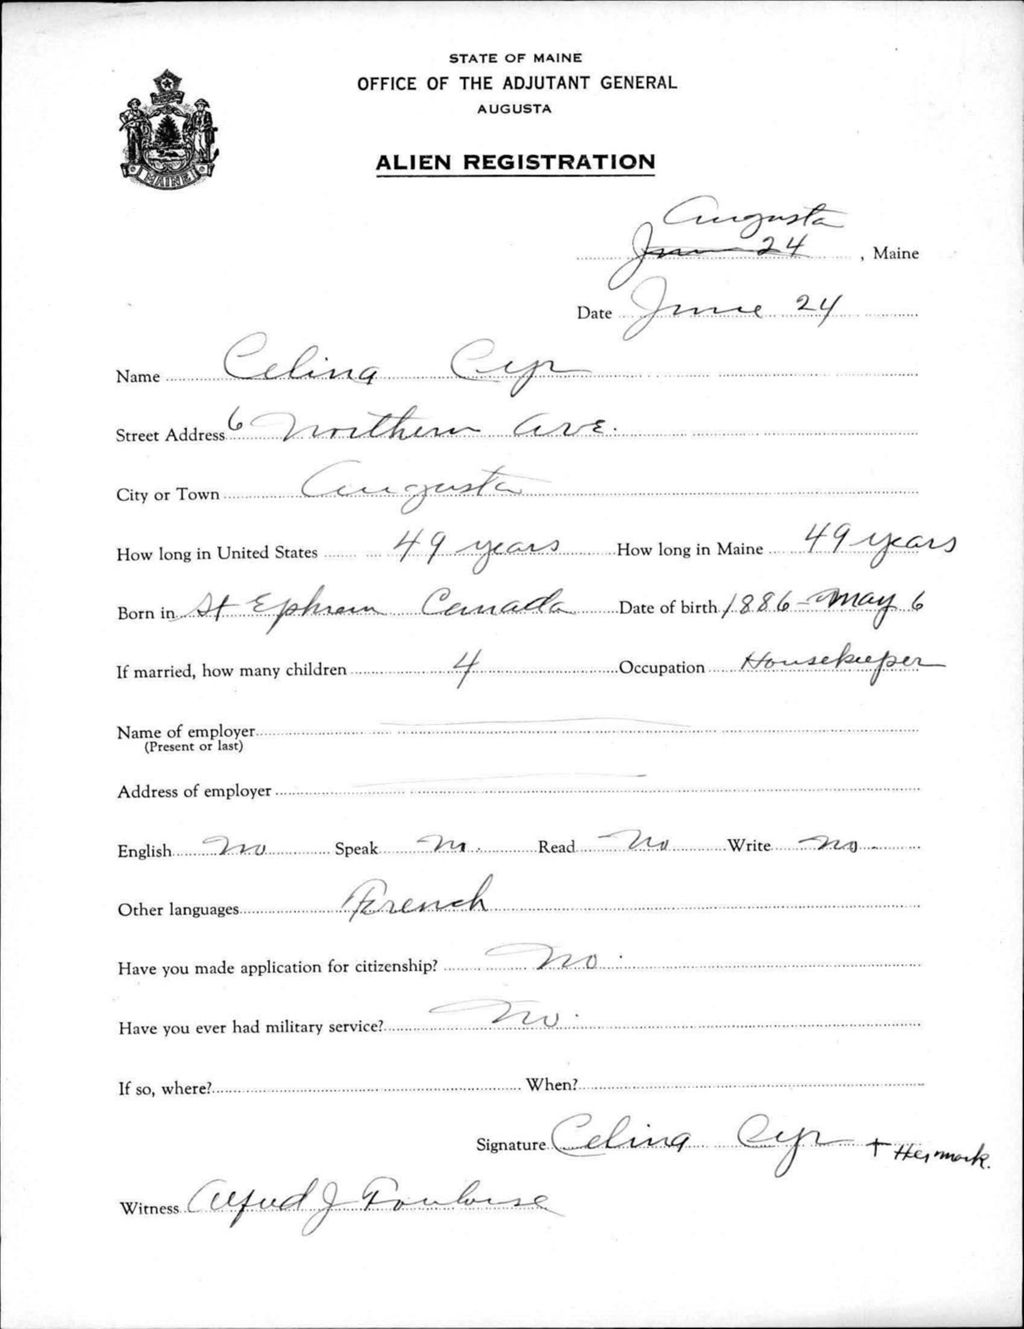 STATE OF MAINE
OFFICE OF THE ADJUTANT GENERAL
AUGUSTA
MAINE
ALIEN REGISTRATION
Augusta
June 24, Maine
Date June 24
Name Celina Cyr
Street Address 6 Northern Ave.
City or Town Augusta
How long in United States 49 years How long in Maine 49 years
Born in St Ephrem Canada Date of birth 1886 - May 6
If married, how many children 4 Occupation Housekeeper
Name of employer
(Present or last)
Address of employer
English No Speak No. Read No Write No.
Other languages French
Have you made application for citizenship? No.
Have you ever had military service? No.
If so, where? When?
Signature Celina Cyr + Her mark.
Witness Alfred J Toulouse